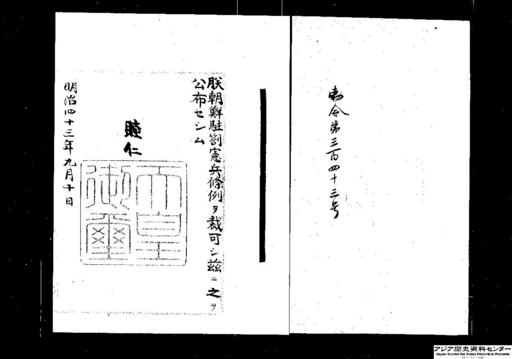 勅令第三百四十三号
朕朝鮮駐剳憲兵條例ヲ裁可シ玆ニ之ヲ
公布セシム
睦仁
天皇
御璽
明治四十三年九月十日
アジア歴史資料センター
Japan Center for Asian Historical Records